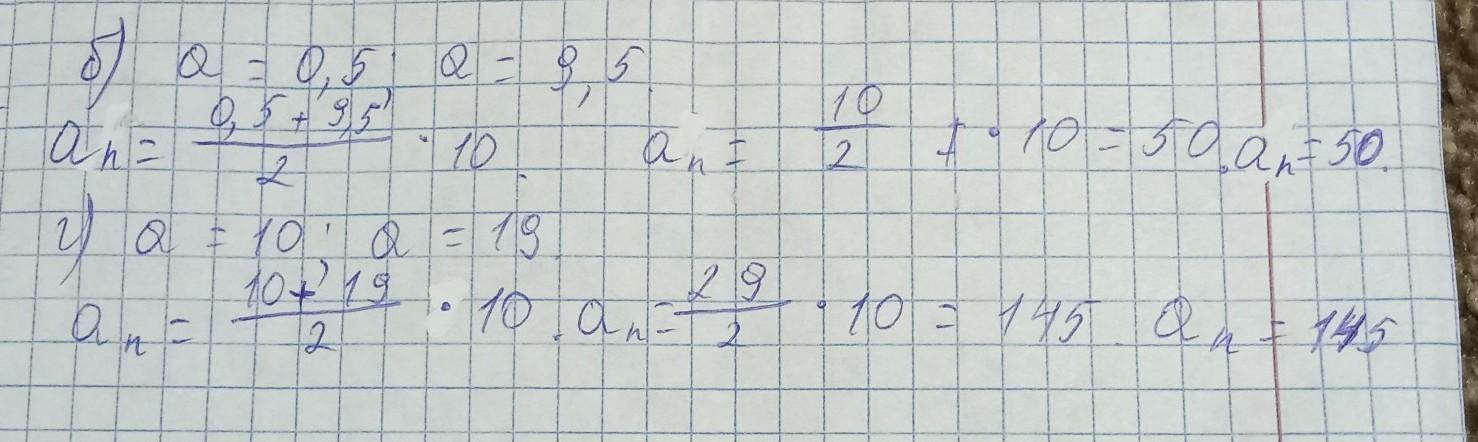 б) a = 0,5; a = 9,5.
aₙ = (0,5 + 9,5)/2 · 10. aₙ = 10/2 · 10 = 50. aₙ = 50.
г) a = 10; a = 19
aₙ = (10 + 19)/2 · 10. aₙ = 29/2 · 10 = 145. aₙ = 145